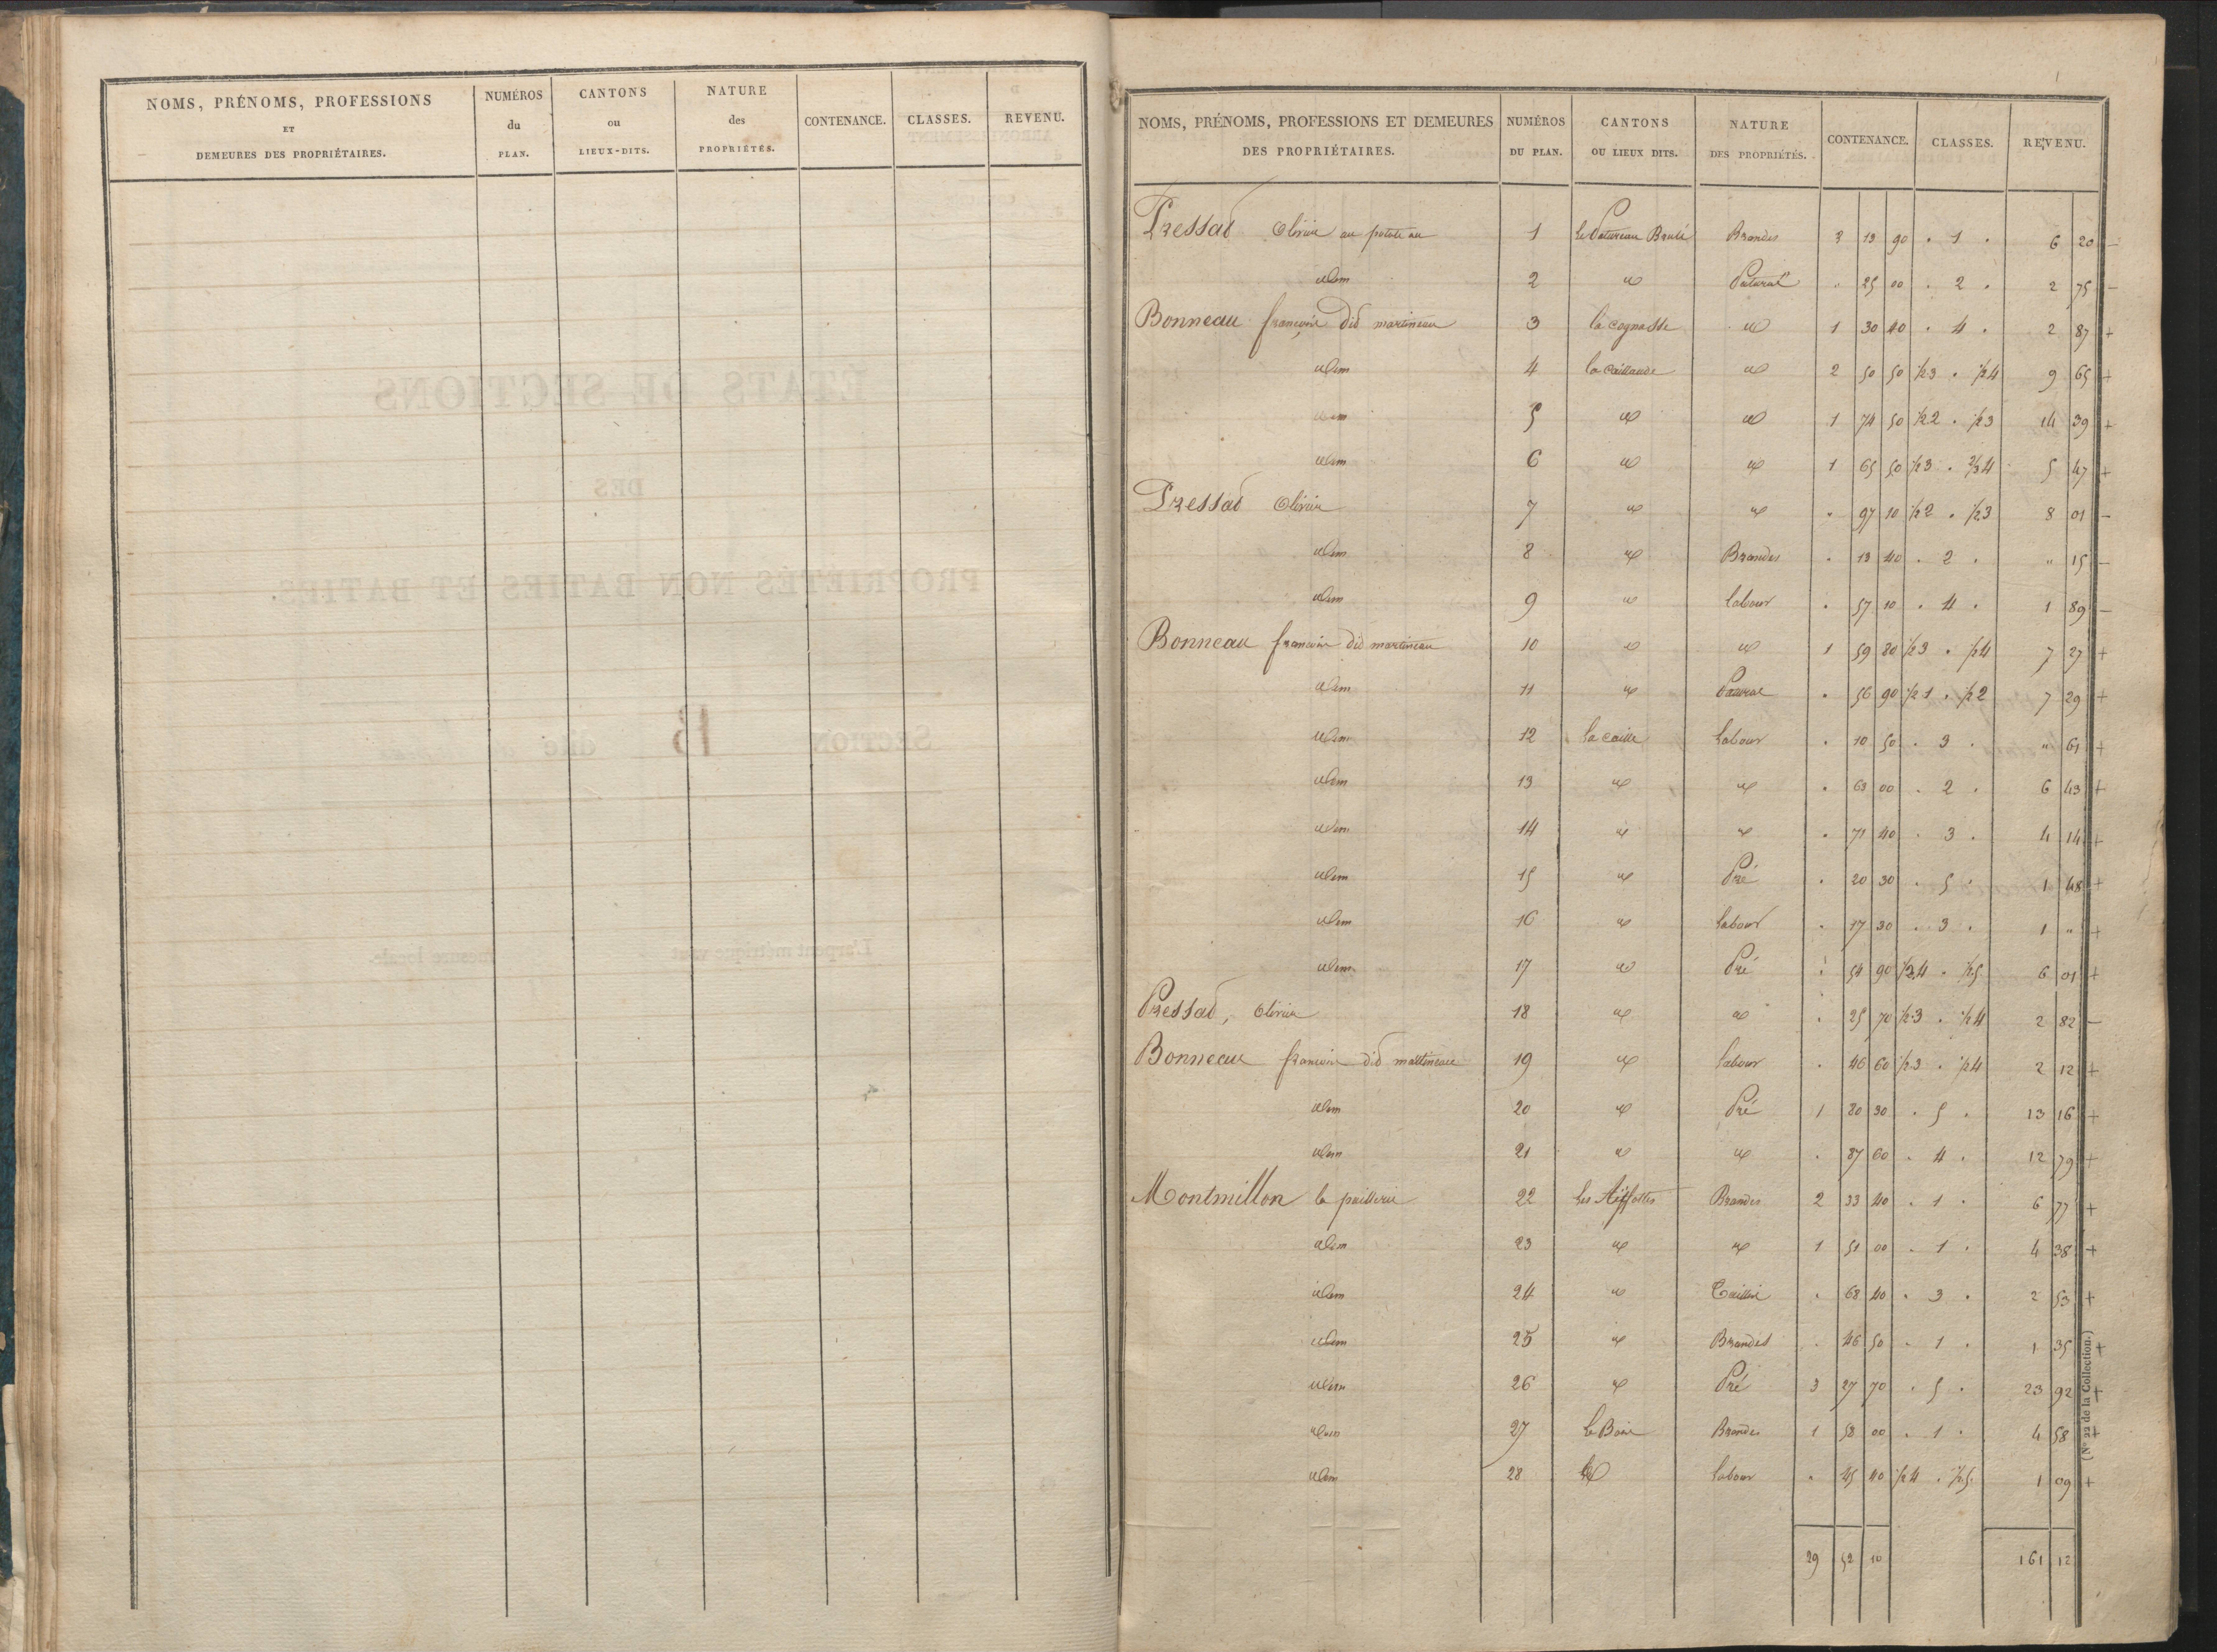 NOMS, PRÉNOMS, PROFESSIONS ET DEMEURES DES PROPRIÉTAIRES. NUMÉROS du PLAN. CANTONS ou LIEUX-DITS. NATURE des PROPRIÉTÉS. CONTENANCE. CLASSES. REVENU.
NOMS, PRÉNOMS, PROFESSIONS ET DEMEURES DES PROPRIÉTAIRES. NUMÉROS DU PLAN. CANTONS OU LIEUX DITS. NATURE DES PROPRIÉTÉS. CONTENANCE. CLASSES. REVENU.
Pressat Olivier au poteteau 1 Le Patureau Brulé Brandes 2 13 90 . 1 . 6 20 -
idem 2 id Patural " 25 00 . 2 . 2 75 -
Bonneau françois dit martineau 3 la cognasse id 1 30 40 . 4 . 2 87 +
idem 4 la Caillaude id 2 50 50 1/2 3 . 1/2 4 9 65 +
idem 5 id id 1 74 50 1/2 2 . 1/2 3 14 39 +
idem 6 id id 1 65 50 1/3 3 . 2/3 4 5 47 +
Pressat Olivier 7 id id " 97 10 1/2 2 . 1/2 3 8 01 -
idem 8 id Brandes . 13 40 . 2 . " 15 -
idem 9 id labour . 57 10 . 4 . 1 89 -
Bonneau francois dit martineau 10 id id 1 59 80 1/2 3 . 1/2 4 7 27 +
idem 11 id Patural . 56 90 1/2 1 . 1/2 2 7 29 +
idem 12 la caille Labour . 10 50 . 3 . " 61 +
idem 13 id id . 63 00 . 2 . 6 43 +
idem 14 id id . 71 40 . 3 . 4 14 +
idem 15 id Pré . 20 30 . 5 . 1 48 +
idem 16 id labour . 17 30 . 3 . 1 " +
idem 17 id Pré . 54 90 1/2 4 . 1/2 5 6 01 +
Pressat, Olivier 18 id id . 25 70 1/2 3 . 1/2 4 2 82 -
Bonneau francois dit martineau 19 id labour . 46 60 1/2 3 . 1/2 4 2 12 +
idem 20 id Pré 1 80 30 . 5 . 13 16 +
idem 21 id id . 87 60 . 4 . 12 79 +
Montmillon la paillerie 22 Brandes 2 33 40 . 1 . 6 77 +
idem 23 id id 1 51 00 . 1 . 4 38 +
idem 24 id Taillis . 68 40 . 3 . 2 53 +
idem 25 id Brandes . 46 50 . 1 . 1 35 +
idem 26 id Pré 3 27 70 . 5 . 23 92 +
idem 27 Brandes 1 58 00 . 1 . 4 58 +
idem 28 id labour " 45 40 1/2 4 . 1/2 5 1 09 +
29 52 10 161 12
(N° 22 de la Collection.)
ÉTATS DE SECTIONS
DES
PROPRIÉTÉS NON BATIES ET BATIES.
SECTION B dite
L'arpent métrique vaut mesure locale.